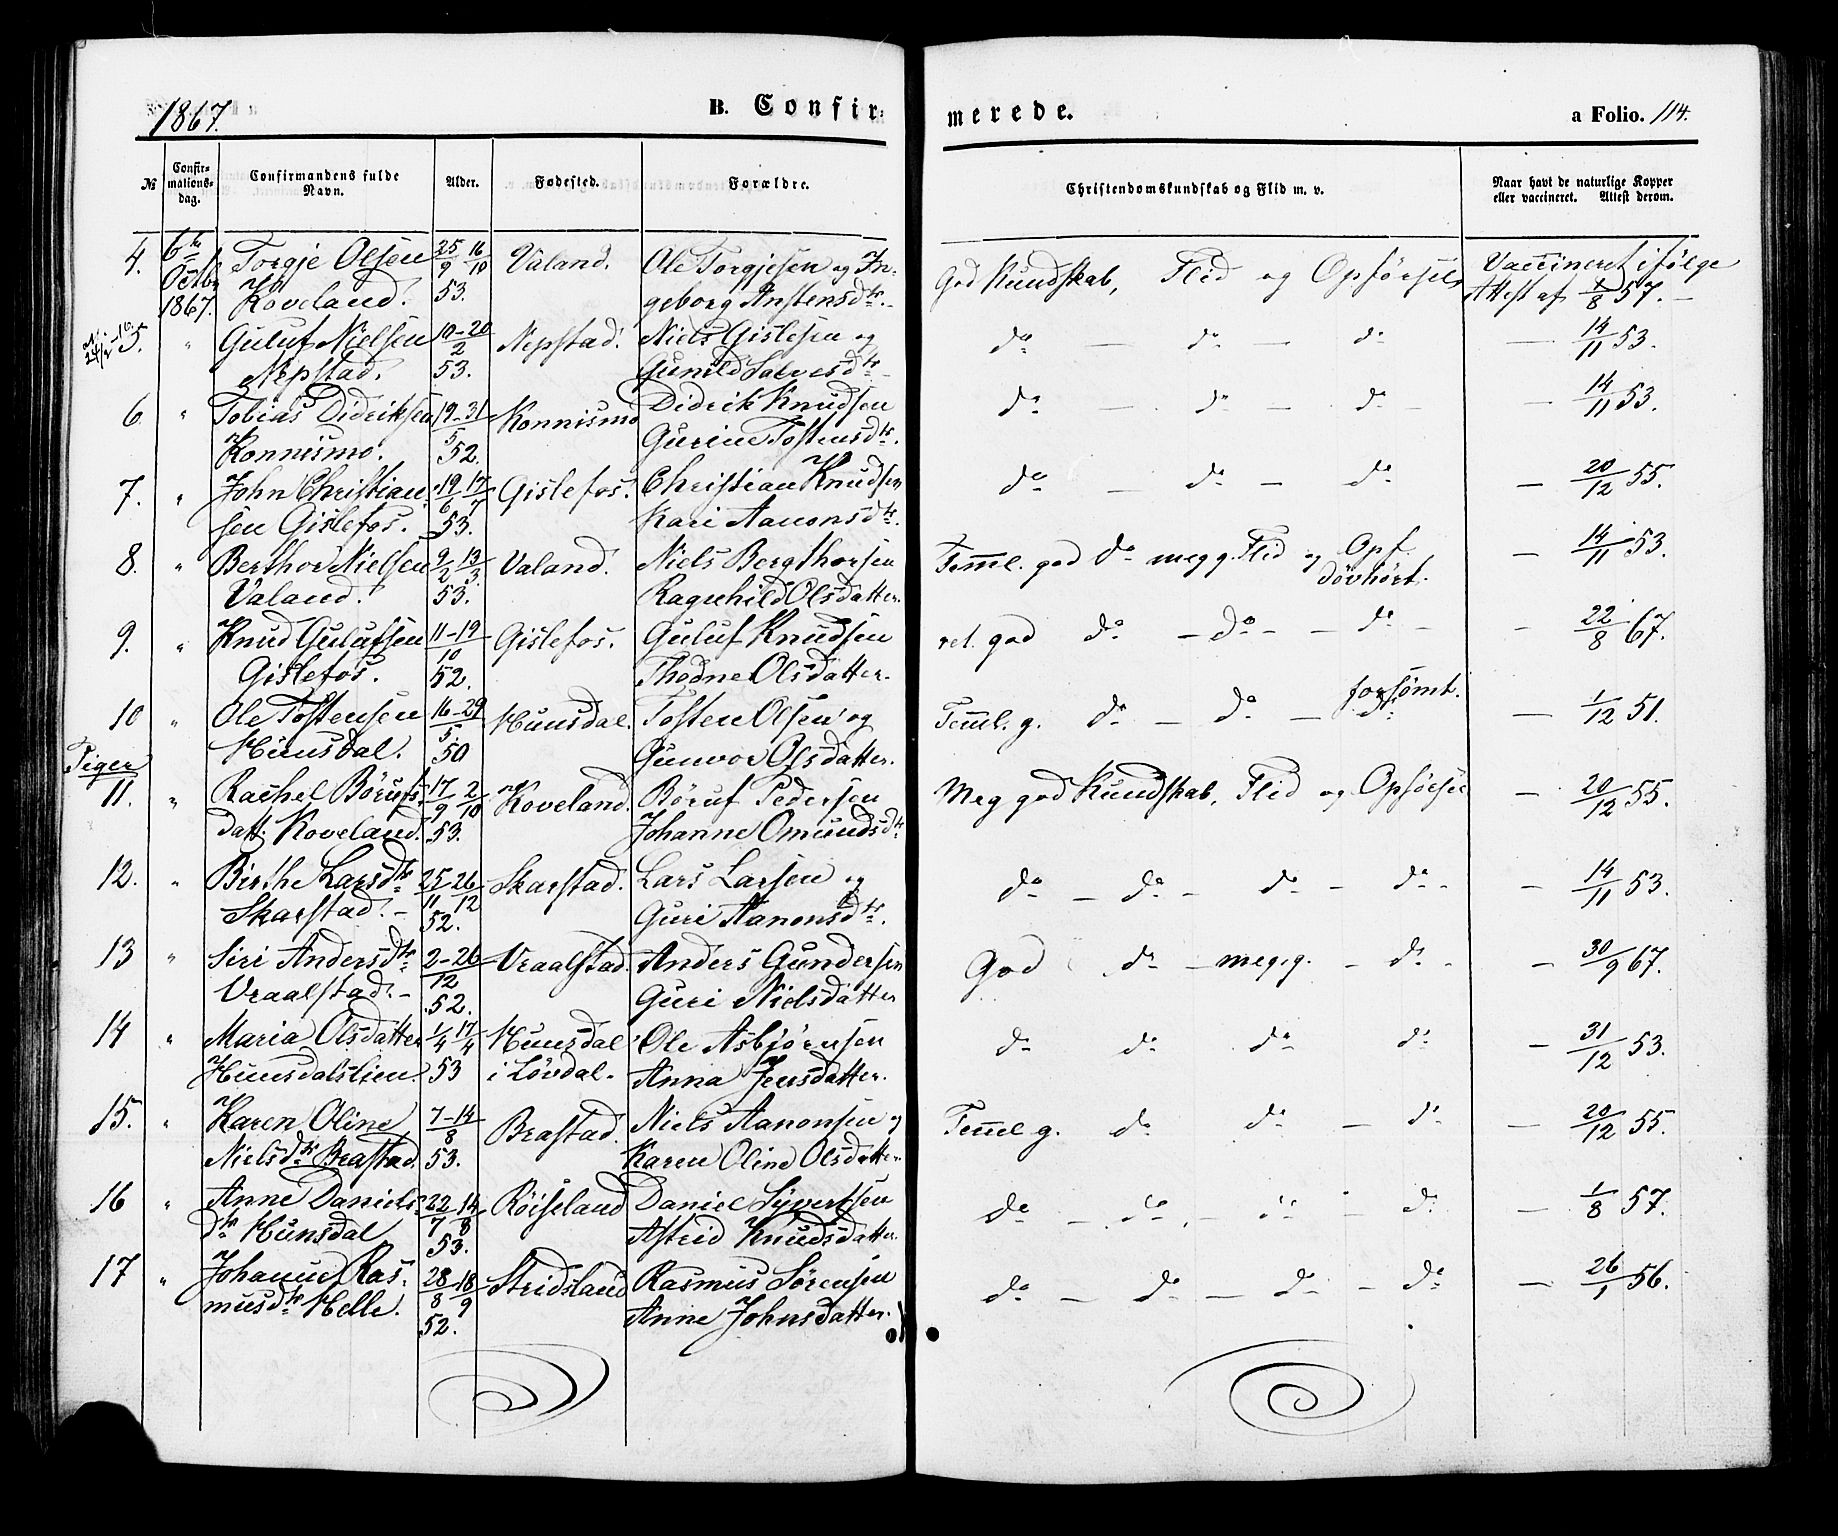 1867. B. Confirmerede. a Folio. 114.
№ Confirmationsdag. Confirmandens fulde Navn. Alder. Fødested. Forældre. Christendomskundskab og Flid m. v. Naar havt de naturlige Kopper eller vaccineret. Attest derom.
4. 6te Torgje Olsen 25/9 16/10 Valand. Ole Torgjesen og In- God Kundskab, Flid og Opførsel Vaccineret ifølge
Octbr 1867. Koveland. 53. geborg Anstensdtr. Attest af 1/8 57. –
5. " Guluf Nielsen 10–20/2 Nepstad. Niels Gislesen og do – do – do – 14/11 53.
Nepstad. 53. Gunild Salvesdtr
6 " Tobias Didriksen 19–31/5 Konnismo Didrik Knudsen do – do – do – 14/11 53.
Konnismo. 52. Gurine Tostensdtr.
7. " John Christian- 19/6 17/7 Gislefos. Christian Knudsen do – do – do – 20/12 55.
sen Gislefos. 53. Kari Aanonsdtr.
8. " Berthor Nielsen 9/2 13/3 Valand. Niels Bergthorsen Temml. god do meg g. Flid og Opf. – 14/11 53.
Valand. 53. Ragnhild Olsdatter. døvhørt.
9. " Knud Gulufsen 11–19/10 Gislefos. Guluf Knudsen ret. god do – do – do – 22/8 67.
Gislefos. 52. Thodne Olsdatter.
10 " Ole Tostensen 16–29/5 Hunsdal. Tosten Olsen og Temml. g. do – do – forsømt. do – 1/12 51.
Hunsdal. 50 Gunvor Olsdatter.
Piger
11. " Rachel Børufs- 17/9 2/10 Koveland. Børuf Pedersen Meg god Kundskab, Flid og Opførsel – 20/12 55.
datt. Koveland. 53. Johanne Omundsdtr
12. " Birthe Larsdtr 25/11–26/12 Skarstad. Lars Larsen og do – do – do – do – 14/11 53.
Skarstad. – 52. Guri Aanonsdtr.
13 " Siri Andersdtr 2–26/12 Vraalstad. Anders Gundersen God do – meg g. – do – 30/9 67.
Vraalstad. – 52. Guri Nielsdatter
14 " Maria Olsdatter 1/4 17/4 Hunsdal Ole Asbjørnsen do do do do – 31/12 53.
Hunsdalslien. 53 i Løvdal. Anna Jensdatter.
15. " Karen Oline 7–14/8 Brastad. Niels Aanonsen og Temml g. do do – do – 20/12 55.
Nielsdtr Brastad. 53. Karen Oline Olsdatter
16 " Anne Daniels- 22/7 14/8 Røiseland Daniel Syvertsen do – do – do do – 1/8 57.
dtr Hunsdal 53. Astrid Knudsdatter.
17 " Johanne Ras- 28/8 18/9 Stridsland Rasmus Sørensen do – do – do – do – 26/1 56.
musdtr Helle. 52. Anne Johnsdatter.